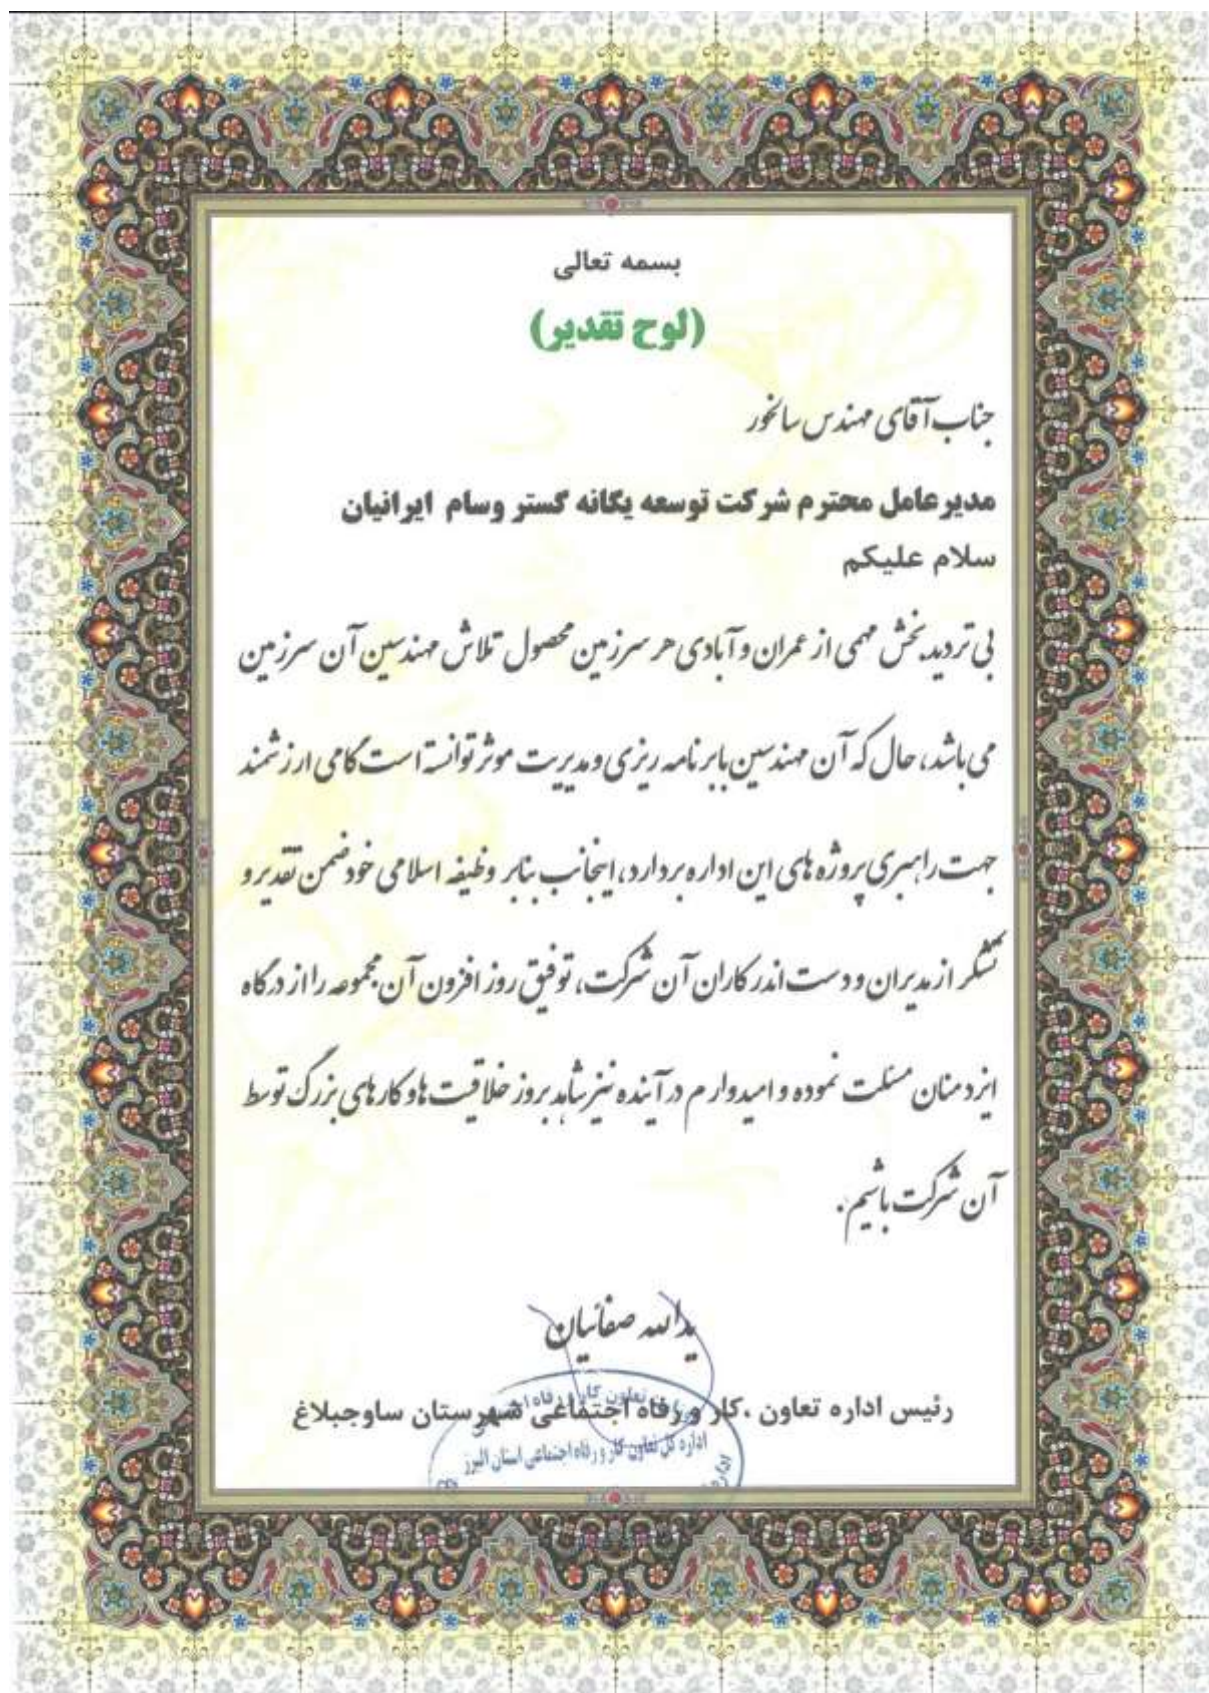 بسمه تعالی
(لوح تقدیر)
جناب آقای مهندس سالخور
مدیرعامل محترم شرکت توسعه یگانه گستر وسام ایرانیان
سلام علیکم
بی تردید بخش مهمی از عمران و آبادی هر سرزمین محصول تلاش مهندسین آن سرزمین
می باشد، حال که آن مهندسین با برنامه ریزی و مدیریت موثر توانسته است گامی ارزشمند
جهت راهبری پروژه های این اداره بردارد، اینجانب بنابر وظیفه اسلامی خود ضمن تقدیر و
تشکر از مدیران و دست اندرکاران آن شرکت، توفیق روز افزون آن مجموعه را از درگاه
ایزد منان مسئلت نموده و امیدوارم در آینده نیز شاهد بروز خلاقیت ها و کارهای بزرگ توسط
آن شرکت باشیم.
یدالله صفائیان
رئیس اداره تعاون ،کار و رفاه اجتماعی شهرستان ساوجبلاغ
اداره کل تعاون کار و رفاه اجتماعی استان البرز